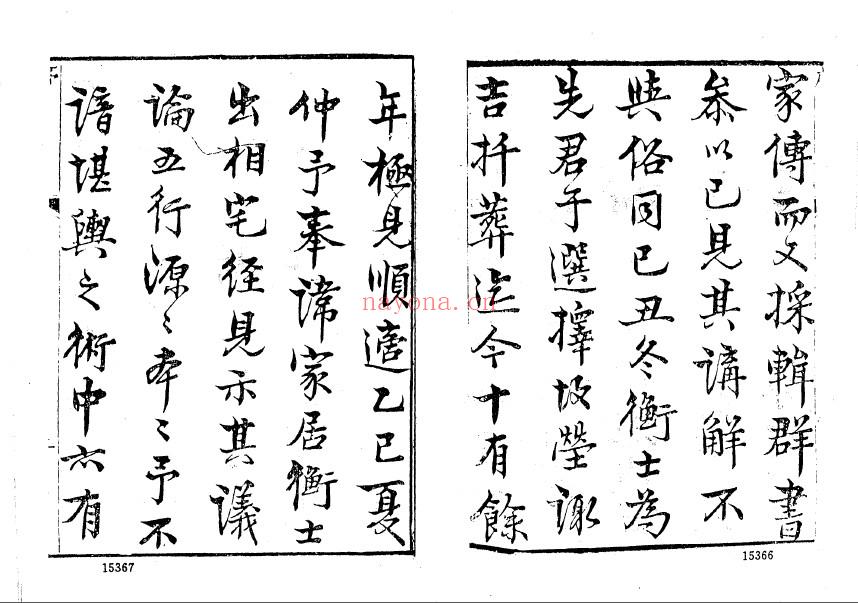 家傳而又採輯群書
叅以己見其講解不
與俗同己丑冬衡士為
先君子選擇坟塋諏
吉扦葬迄今十有餘
15366
年極見順適乙巳夏
仲予奉諱家居衡士
出相宅経見示其議
論五行源〻本〻予不
諳堪輿之術中亦有
15367
nayona.cn